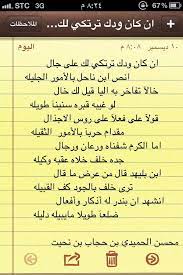 STC 3G ٨:٢٤ م ٦٧%
الملاحظات ان كان ودك ترتكي لك...
اليوم ١٠ ديسمبر ٨:٠٨ م
ان كان ودك ترتكي لك على جال
انص ابن ناحل بالأمور الجليله
خالاً تفاخر به اليا قيل لك خال
لو غيبه قبره سنيناً طويله
قولاً على فعلاً على روس الاجدال
مقدام حرباً بالأمور الثقيله
اما الكرم شفناه ورعان ورجال
جده خلف خلاه عقبه وكيله
ابن بليهد قال من عرض ما قال
ترى خلف بالجود كف القبيله
انشهد ان بندر له أذكار وأفعال
ضلعاً طويلا مايبيله دليله
محسن الحميدي بن حجاب بن نحيت